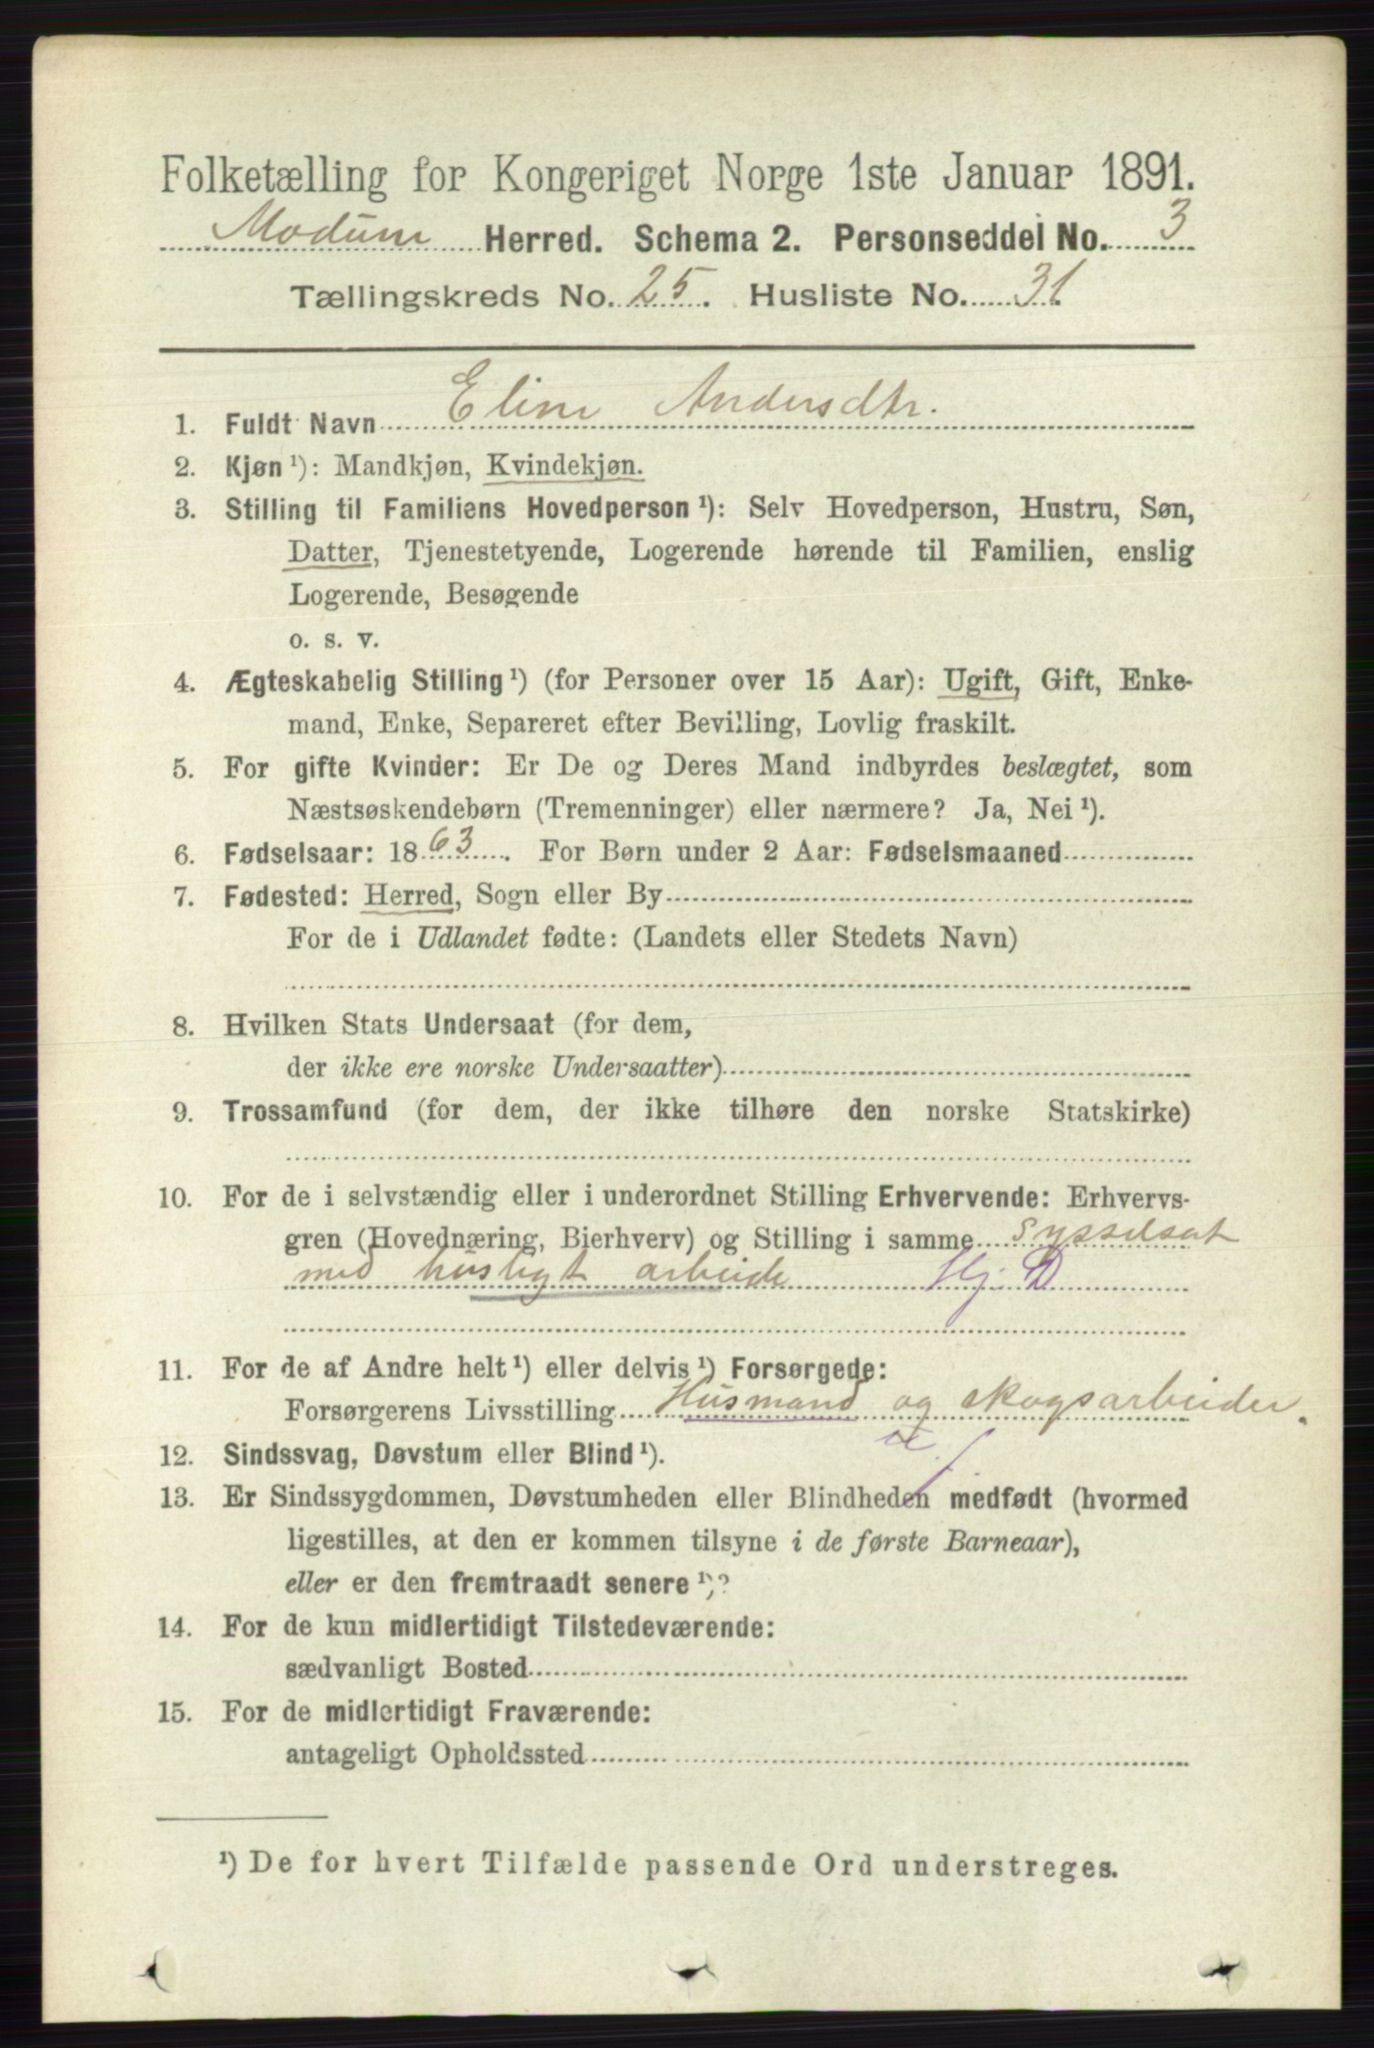 Folketælling for Kongeriget Norge 1ste Januar 1891.
Modum Herred. Schema 2. Personseddel No. 3
Tællingskreds No. 25. Husliste No. 31
1. Fuldt Navn Eline Andersdtr.
2. Kjøn ¹): Mandkjøn, Kvindekjøn.
3. Stilling til Familiens Hovedperson ¹): Selv Hovedperson, Hustru, Søn,
Datter, Tjenestetyende, Logerende hørende til Familien, enslig
Logerende, Besøgende
o. s. v.
4. Ægteskabelig Stilling ¹) (for Personer over 15 Aar): Ugift, Gift, Enke-
mand, Enke, Separeret efter Bevilling, Lovlig fraskilt.
5. For gifte Kvinder: Er De og Deres Mand indbyrdes beslægtet, som
Næstsøskendebørn (Tremenninger) eller nærmere? Ja, Nei ¹).
6. Fødselsaar: 1863. For Børn under 2 Aar: Fødselsmaaned
7. Fødested: Herred, Sogn eller By
For de i Udlandet fødte: (Landets eller Stedets Navn)
8. Hvilken Stats Undersaat (for dem,
der ikke ere norske Undersaatter)
9. Trossamfund (for dem, der ikke tilhøre den norske Statskirke)
10. For de i selvstændig eller i underordnet Stilling Erhvervende: Erhvervs-
gren (Hovednæring, Bierhverv) og Stilling i samme Sysselsat
med husligt arbeide Hj. D
11. For de af Andre helt ¹) eller delvis ¹) Forsørgede:
Forsørgerens Livsstilling Husmand og skogsarbeider.
12. Sindssvag, Døvstum eller Blind ¹).
13. Er Sindssygdommen, Døvstumheden eller Blindheden medfødt (hvormed
ligestilles, at den er kommen tilsyne i de første Barneaar),
eller er den fremtraadt senere ¹)?
14. For de kun midlertidigt Tilstedeværende:
sædvanligt Bosted
15. For de midlertidigt Fraværende:
antageligt Opholdssted
¹) De for hvert Tilfælde passende Ord understreges.